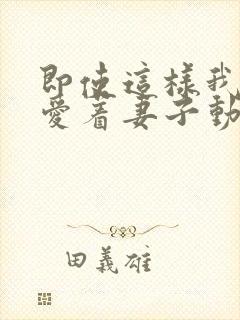 即使這樣我
愛着妻子動
田義雄